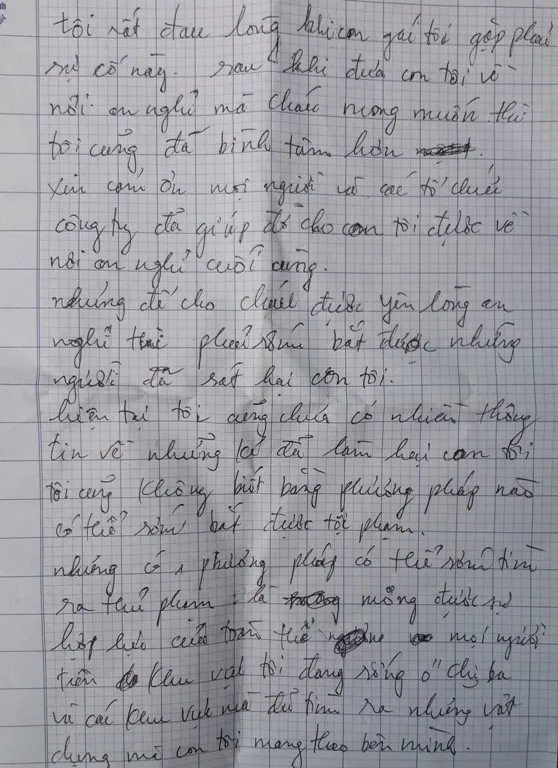 tôi rất đau lòng khi con gái tôi gặp phải
sự cố này. sau khi đưa con tôi về
nơi an nghỉ mà cháu mong muốn thì
tôi cũng đã bình tâm hơn
xin cảm ơn mọi người và các tổ chức
công ty đã giúp đỡ cho con tôi được về
nơi an nghỉ cuối cùng.
nhưng để cho cháu được yên lòng an
nghỉ thì phải sớm bắt được những
người đã sát hại con tôi.
hiện tại tôi cũng chưa có nhiều thông
tin về những kẻ đã làm hại con tôi
tôi cũng không biết bằng phương pháp nào
có thể sớm bắt được tội phạm.
nhưng có 1 phương pháp có thể sớm tìm
ra thủ phạm: là mong được sự
hợp lực của toàn thể mọi người
trên khu vực tôi đang sống ở chị ba
và các khu vực nữa để tìm ra những vật
dụng mà con tôi mang theo bên mình.